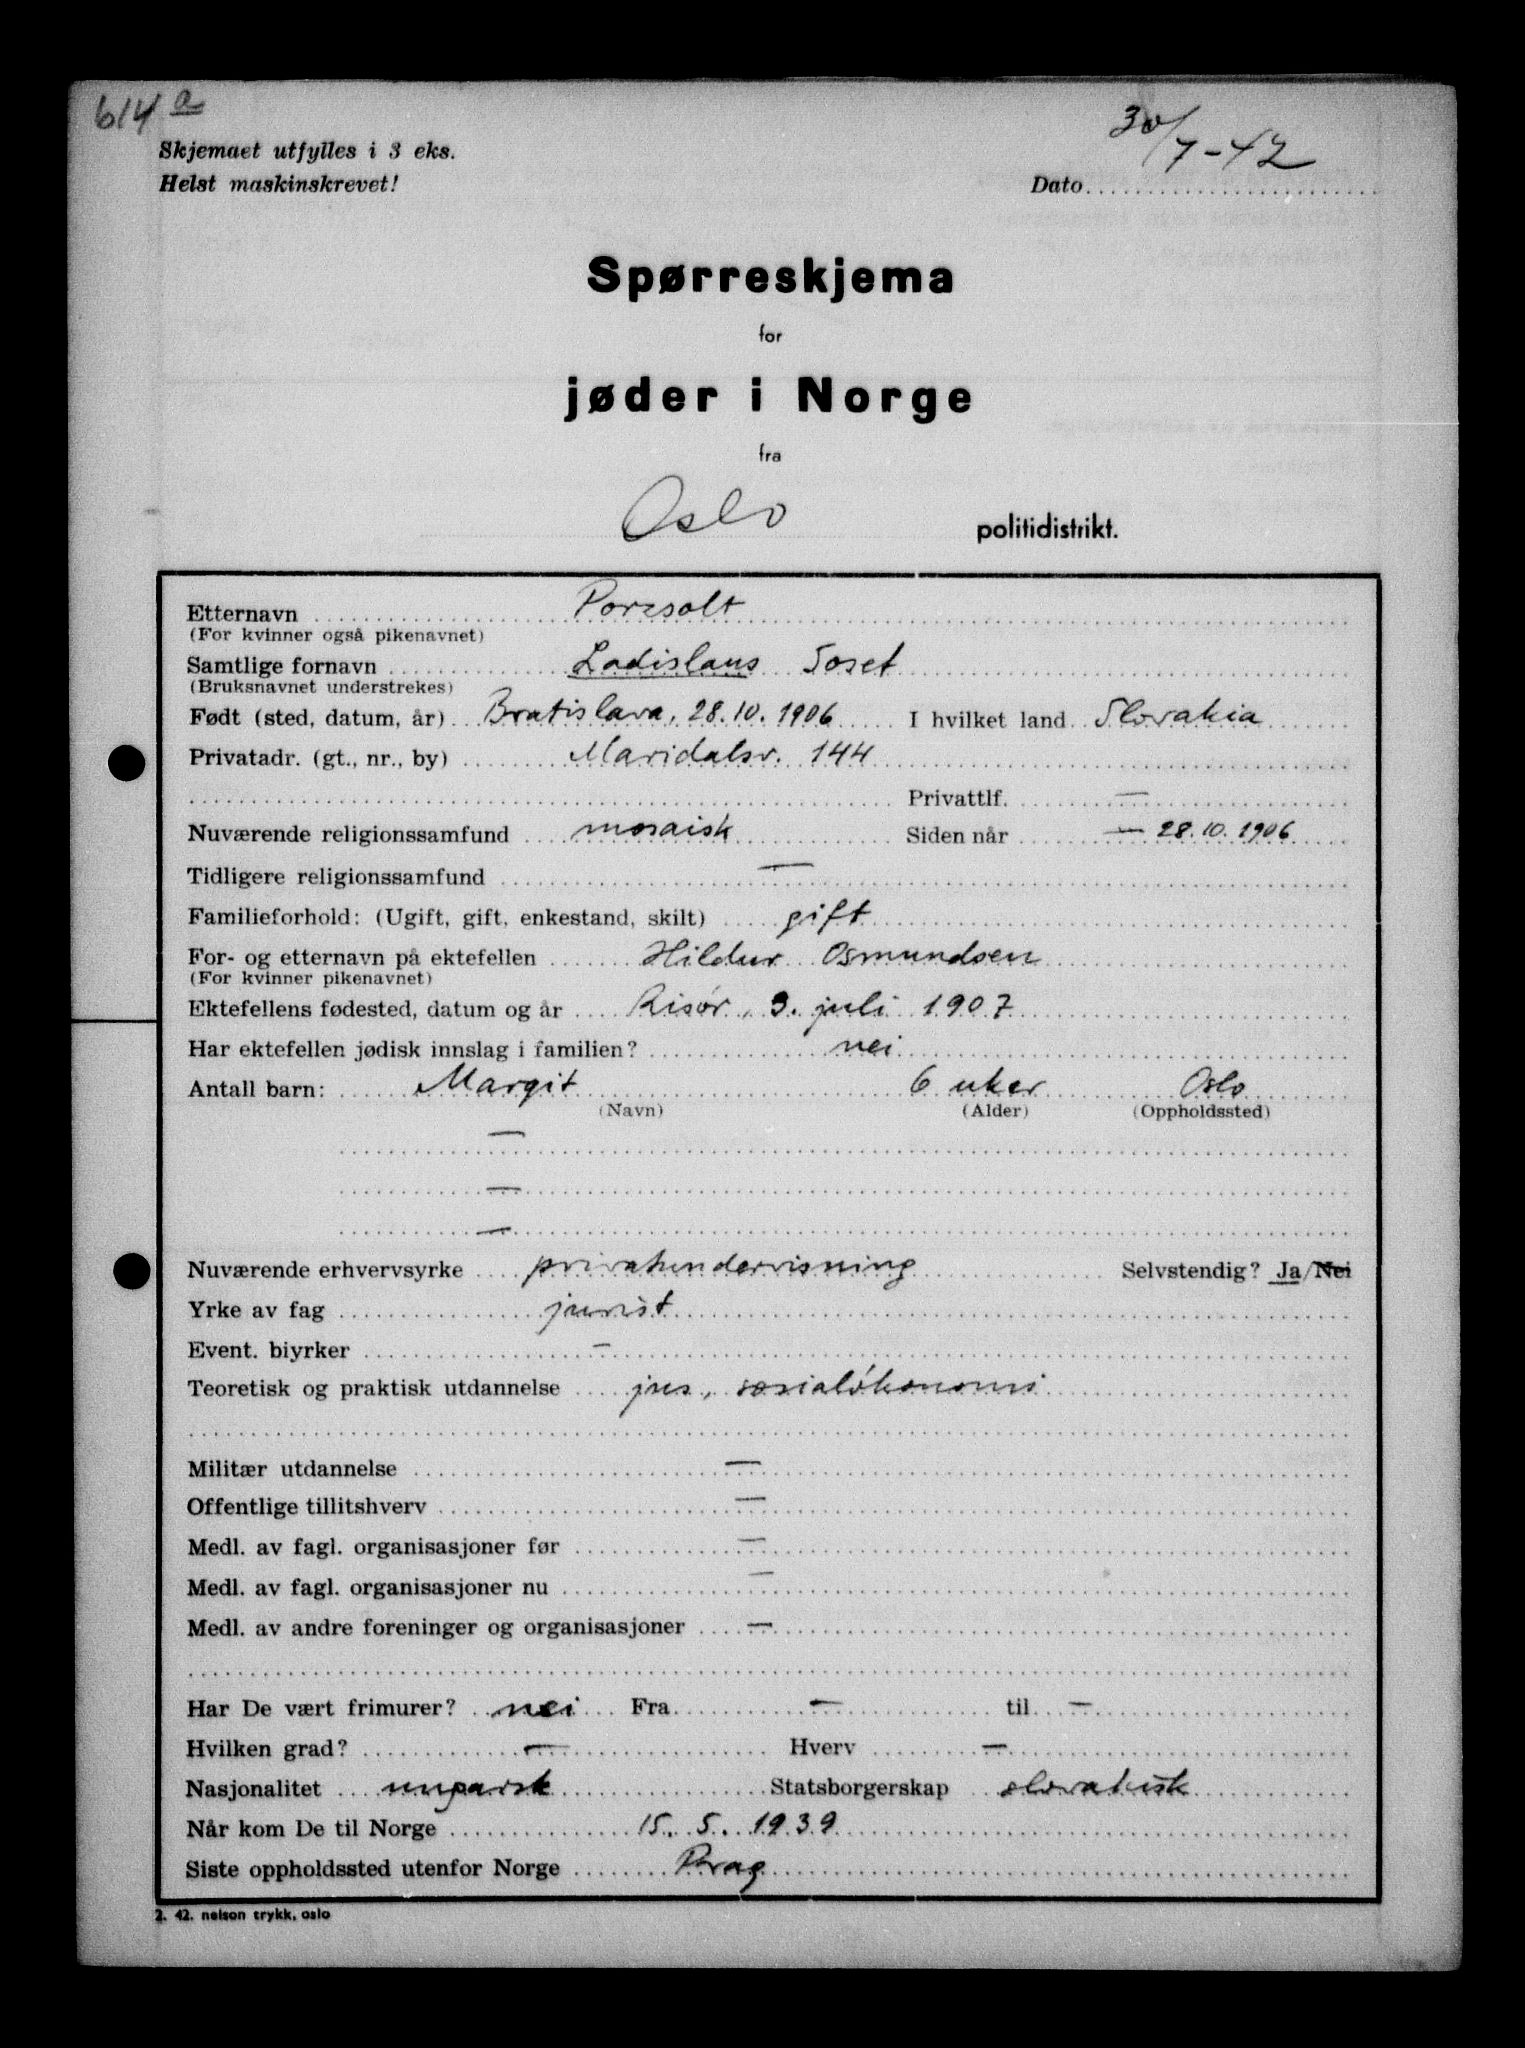 614 a
Skjemaet utfylles i 3 eks.
Helst maskinskrevet!
30/7-42
Dato
Spørreskjema
for
jøder i Norge
fra
Oslo politidistrikt.
Etternavn Porzsolt
(For kvinner også pikenavnet)
Samtlige fornavn Ladislaus Josef
(Bruksnavnet understrekes)
Født (sted, datum, år) Bratislava, 28.10.1906 I hvilket land Slovakia
Privatadr. (gt., nr., by) Maridalsv. 144
Privattlf. —
Nuværende religionssamfund mosaisk Siden når — 28.10.1906
Tidligere religionssamfund —
Familieforhold: (Ugift, gift, enkestand, skilt) gift
For- og etternavn på ektefellen Hildur Osmundsen
(For kvinner pikenavnet)
Ektefellens fødested, datum og år Risör, 3. juli 1907
Har ektefellen jødisk innslag i familien? nei
Antall barn: Margit 6 uker Oslo
(Navn) (Alder) (Oppholdssted)
—
—
—
Nuværende erhvervsyrke privatundervisning Selvstendig? Ja/Nei
Yrke av fag jurist
Event. biyrker —
Teoretisk og praktisk utdannelse jus, sosialökonomi
Militær utdannelse —
Offentlige tillitshverv —
Medl. av fagl. organisasjoner før —
Medl. av fagl. organisasjoner nu —
Medl. av andre foreninger og organisasjoner —
Har De vært frimurer? nei Fra — til —
Hvilken grad? — Hverv —
Nasjonalitet ungarsk Statsborgerskap slovakisk
Når kom De til Norge 15. 5. 1939
Siste oppholdssted utenfor Norge Prag
2. 42. nelson trykk, oslo